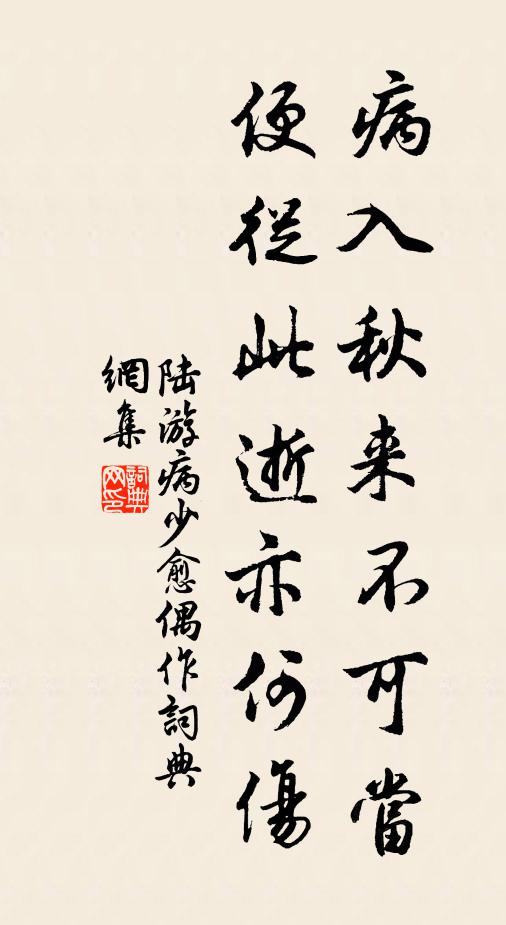 病入秋来不可當
便從此逝亦何傷
陆游病少愈偶作詞典
網集
詞典網印